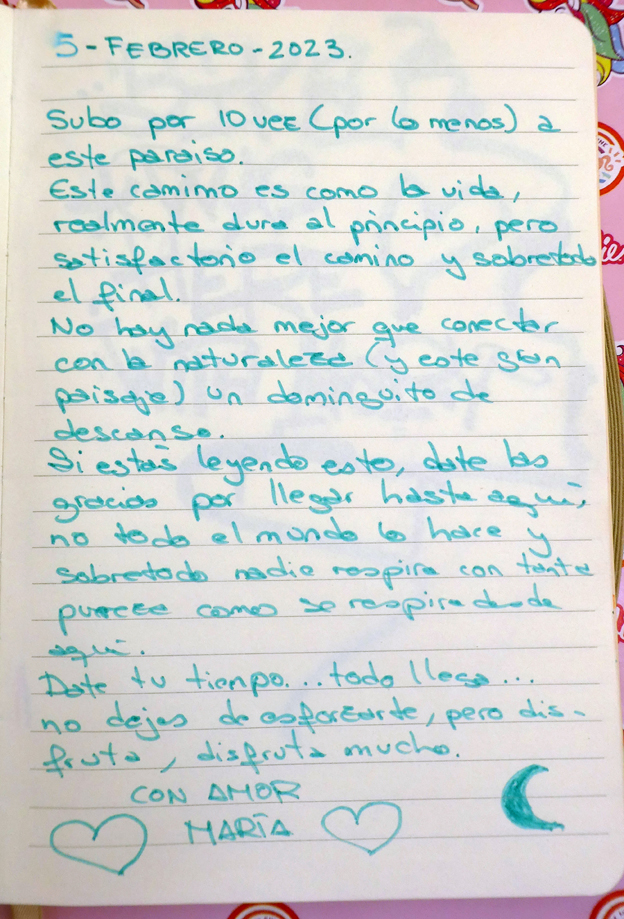 5-FEBRERO-2023.
Subo por 10 vez (por lo menos) a
este paraiso.
Este camimo es como la vida,
realmente dura al principio, pero
satisfactorio el camino y sobretodo
el final.
No hay nada mejor que conectar
con la naturaleza (y este gran
paisaje) un dominguito de
descanso.
Si estás leyendo esto, date las
gracias por llegar hasta aquí,
no todo el mundo lo hace y
sobretodo nadie respira con tanta
pureza como se respira desde
aquí.
Date tu tiempo... todo llega...
no dejes de esforzarte, pero dis-
fruta, disfruta mucho.
CON AMOR
MARÍA